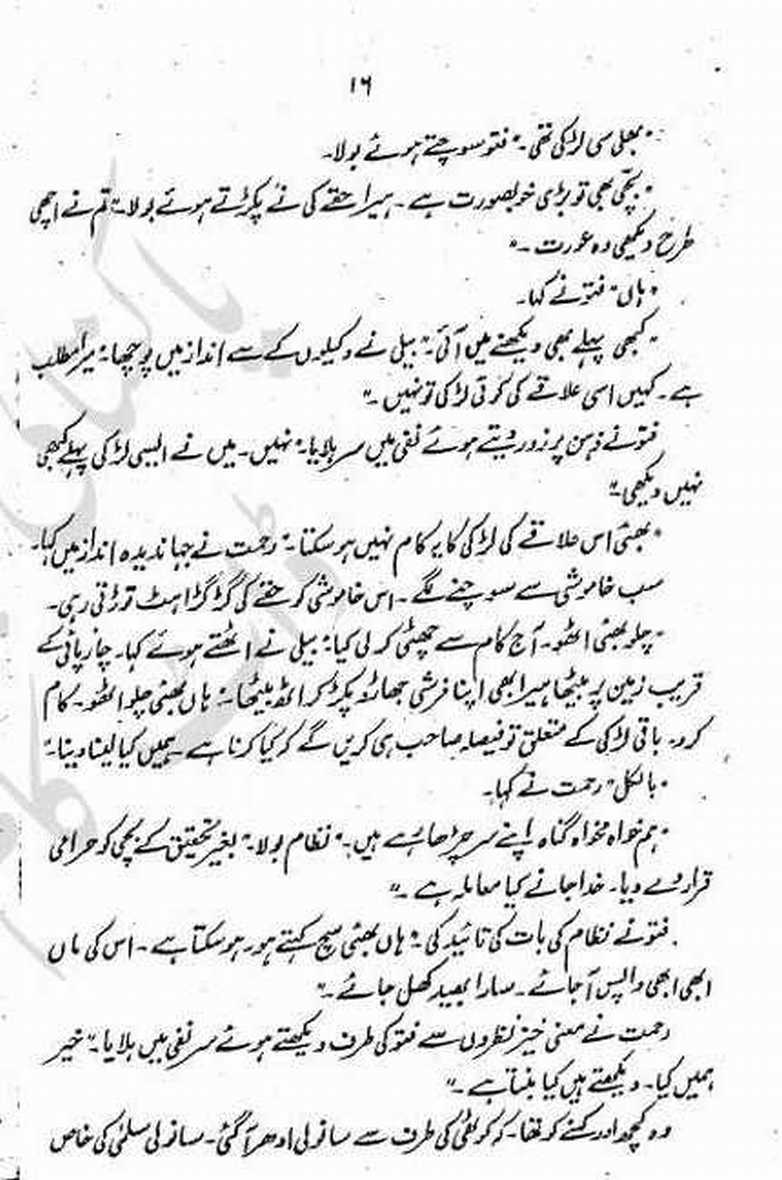 ۱۶
"بھلی سی لڑکی تھی۔" فتو سوچتے ہوئے بولا۔
"بچی بھی تو بڑی خوبصورت ہے۔ ہیرا حقے کی نے پکڑتے ہوئے بولا۔ "تم نے اچھی
طرح دیکھی وہ عورت۔"
"ہاں" فتو نے کہا۔
"کبھی پہلے بھی دیکھنے میں آئی۔" بیلی نے وکیلوں کے سے انداز میں پوچھا: میرا مطلب
ہے۔ کہیں اسی علاقے کی کوئی لڑکی تو نہیں۔"
فتو نے ذہن پر زور دیتے ہوئے نفی میں سر ہلایا۔ "نہیں۔ میں نے ایسی لڑکی پہلے کبھی
نہیں دیکھی۔"
"بھئی اس علاقے کی لڑکی کا یہ کام نہیں ہو سکتا۔" رحمت نے جہاندیدہ انداز میں کہا۔
سب خاموشی سے سوچنے لگے۔ اس خاموشی کو حقے کی گڑگڑاہٹ توڑتی رہی۔
"چلو بھئی اٹھو۔ آج کام سے چھٹی کر لی کیا" بیلی نے اٹھتے ہوئے کہا۔ چارپائی کے
قریب زمین پر بیٹھا ہیرا بھی اپنا فرشی جھاڑو پکڑ کر اٹھ بیٹھا۔ "ہاں بھئی چلو اٹھو۔ کام
کرو۔ باقی لڑکی کے متعلق تو فیصلہ صاحب ہی کریں گے کہ کیا کرنا ہے۔ ہمیں کیا لینا دینا۔"
"بالکل" رحمت نے کہا۔
"ہم خواہ مخواہ گناہ اپنے سر چڑھا رہے ہیں۔" نظام بولا۔ "بغیر تحقیق کے بچی کو حرامی
قرار دے دیا۔ خدا جانے کیا معاملہ ہے۔"
فتو نے نظام کی بات کی تائید کی۔ "ہاں بھئی سچ کہتے ہو۔ ہو سکتا ہے۔ اس کی ماں
ابھی ابھی واپس آ جائے۔ سارا بھید کھل جائے۔"
رحمت نے معنی خیز نظروں سے فتو کی طرف دیکھتے ہوئے سر نفی میں ہلایا۔ "خیر
ہمیں کیا۔ دیکھتے ہیں کیا بنتا ہے۔"
وہ کچھ اور کہنے کو تھا۔ کہ کوٹھی کی طرف سے سانولی ادھر آ گئی۔ سانولی سلمیٰ کی خاص